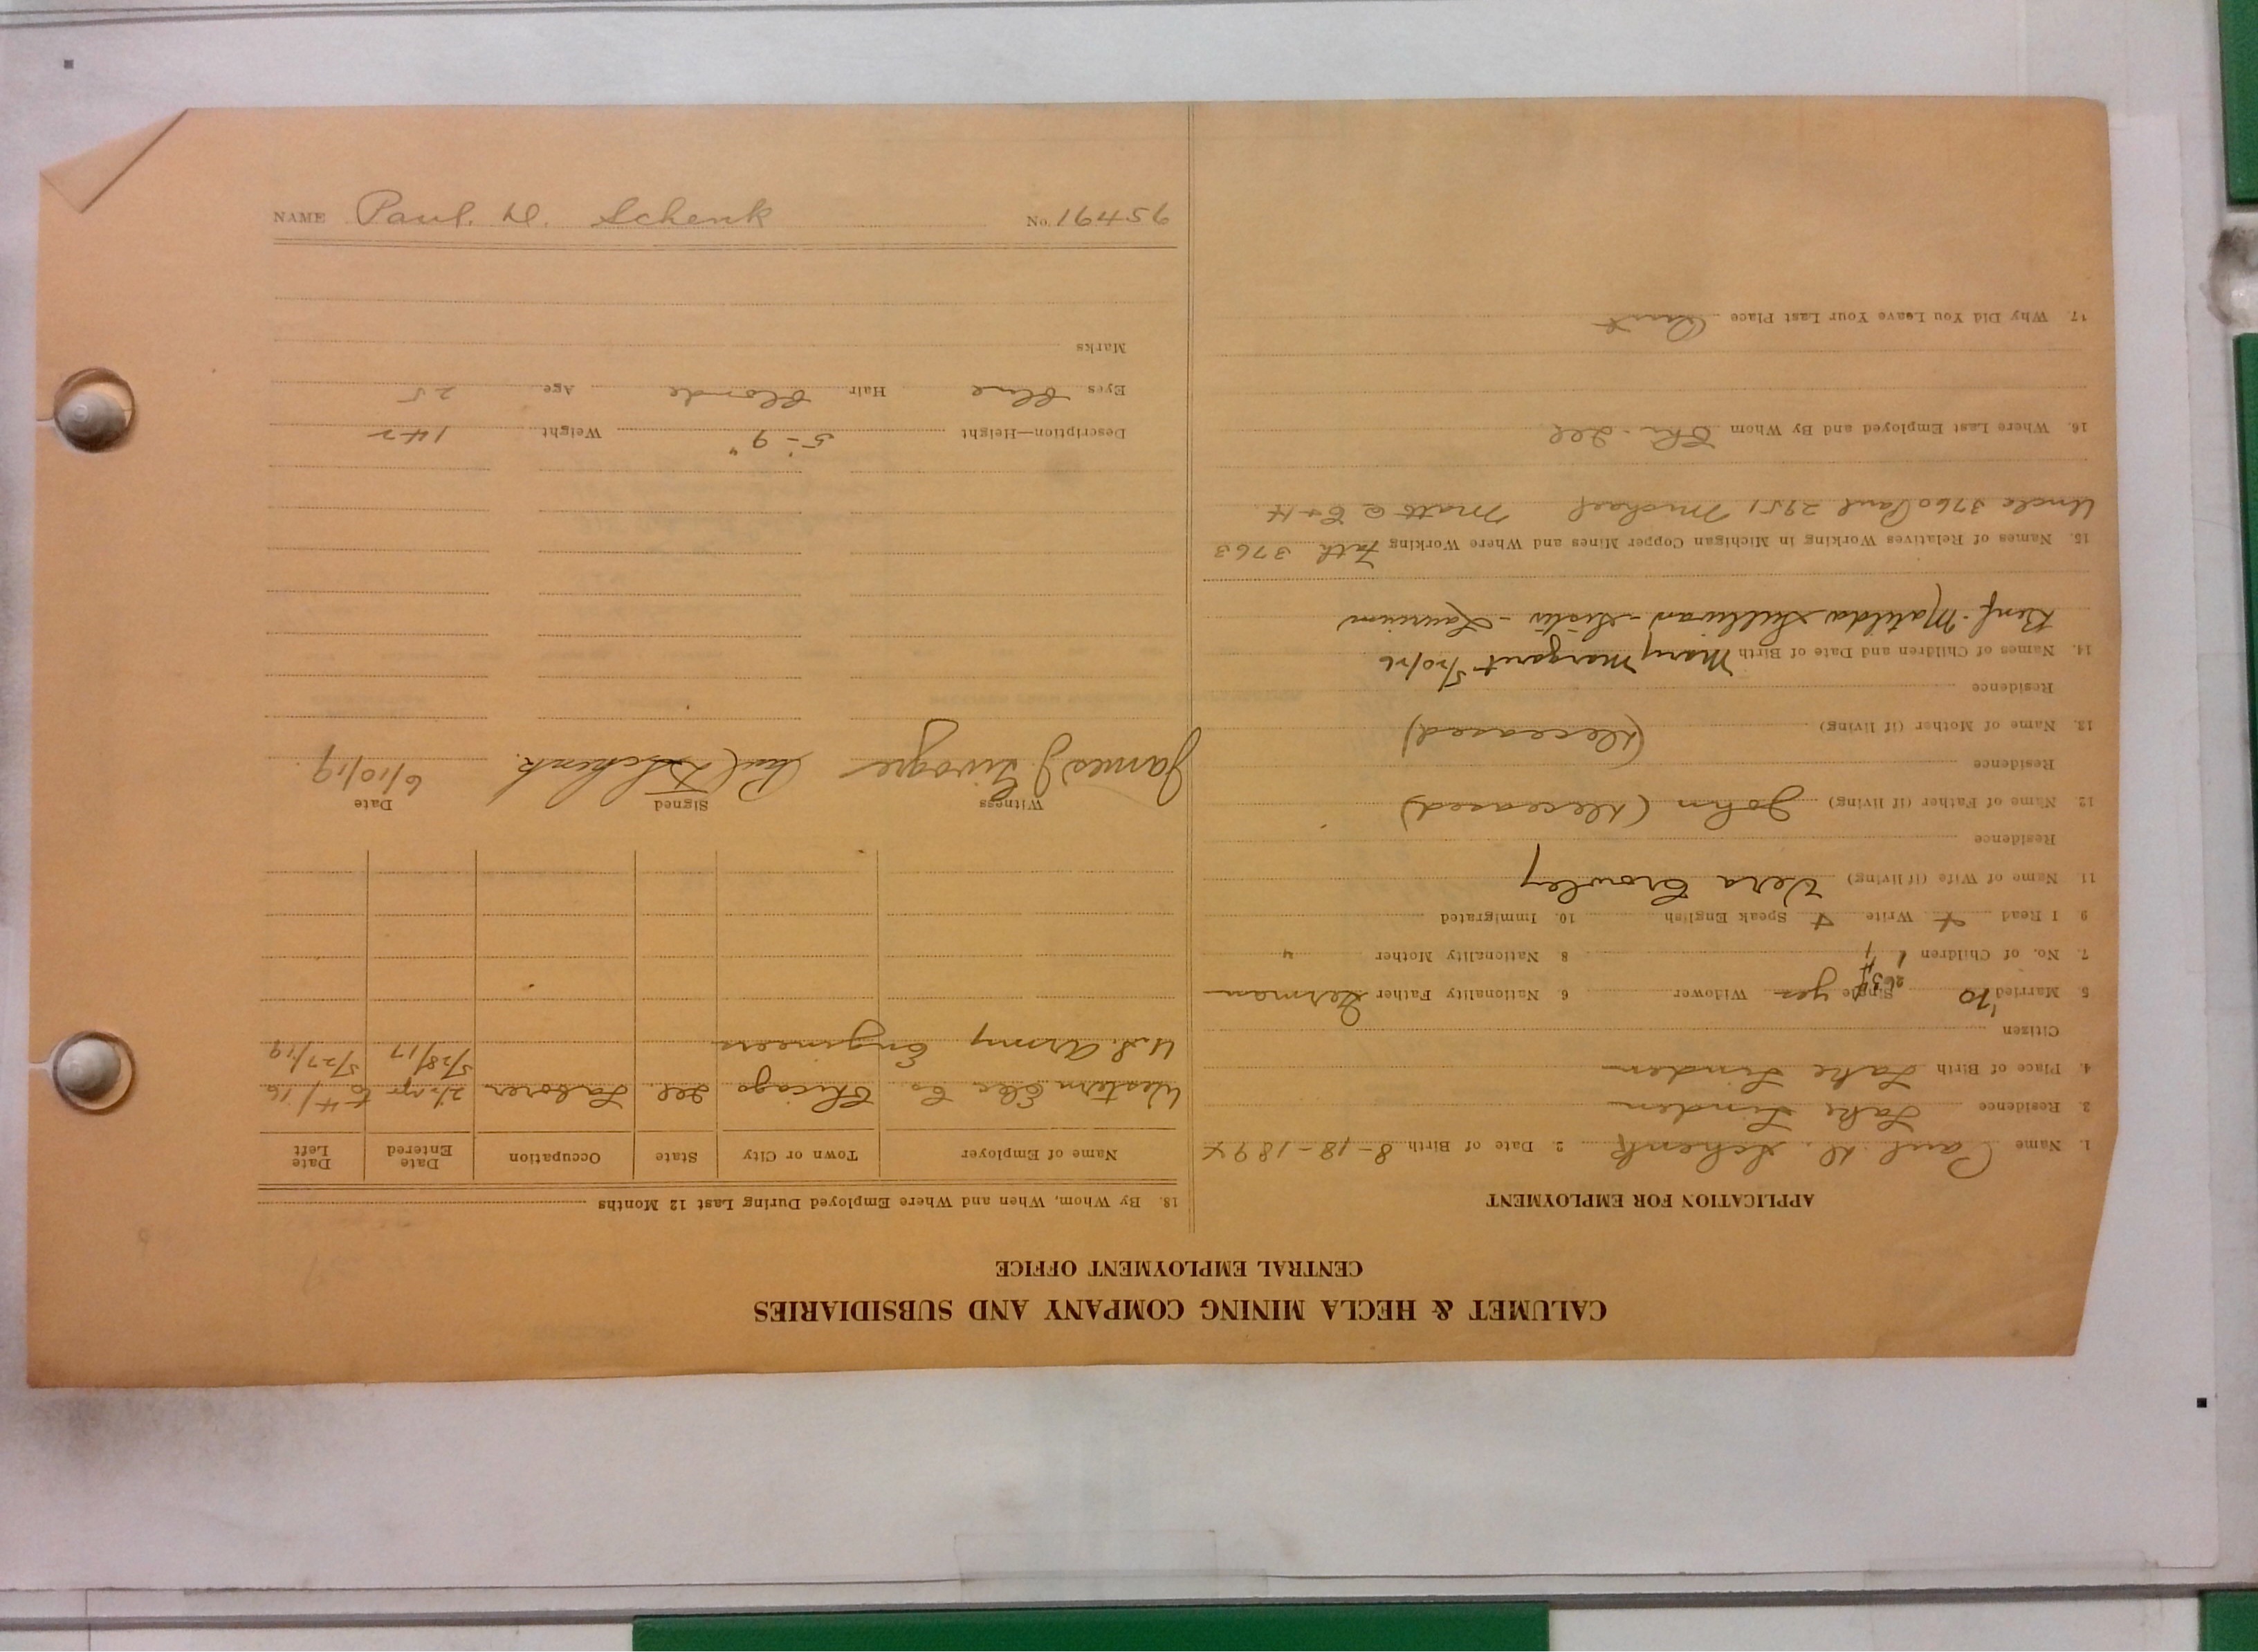 CALUMET & HECLA MINING COMPANY AND SUBSIDIARIES
CENTRAL EMPLOYMENT OFFICE
APPLICATION FOR EMPLOYMENT
1. Name Paul D. Schenk 2. Date of Birth 8-18-1894
3. Residence Lake Linden
4. Place of Birth Lake Linden
Citizen
5 Married no Single yes Widower 6 Nationality Father German
7. No. of Children 1 8 Nationality Mother "
9 I Read + Write + Speak English 10. Immigrated
11. Name of Wife (if living) Vera Crowley
Residence
12. Name of Father (if living) John (Deceased)
Residence
13. Name of Mother (if living) (Deceased)
Residence
14. Names of Children and Date of Birth Mary Margaret 5/20/26
Benf. Matilda Sullivan - Sister - Laurium
15. Names of Relatives Working in Michigan Copper Mines and Where Working Fath 3763
Uncle 3760 Paul 2951 Michael Matt @ C+H
16. Where Last Employed and By Whom Chi. Ill
17. Why Did You Leave Your Last Place Quit
18. By Whom, When and Where Employed During Last 12 Months
Name of Employer Town or City State Occupation Date Entered Date Left
Western Elec Co. Chicago Ill. Laborer 2½ yr to 4/16
U.S. Army Engineers 5/28/17 5/27/19
Witness Signed Date
James J. Paul D Schenk. 6/10/19.
Description—Height 5'-9" Weight 142
Eyes Blue Hair Blonde Age 25
Marks
NAME Paul. D. Schenk No. 16459